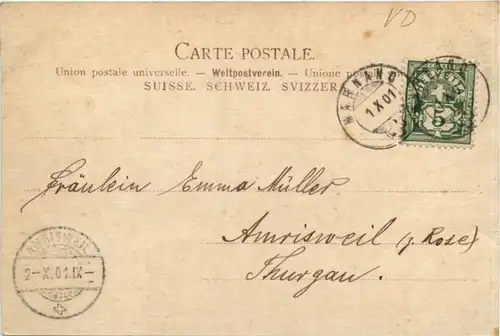 VD
CARTE POSTALE.
Union postale universelle. — Weltpostverein. — Unione
SUISSE. SCHWEIZ. SVIZZERA
MARNAND
1 X 01
HELVETIA
5
Fräulein Emma Müller
Amrisweil (z. Rose)
Thurgau.
AMRISWEIL
2-X.01.IX-